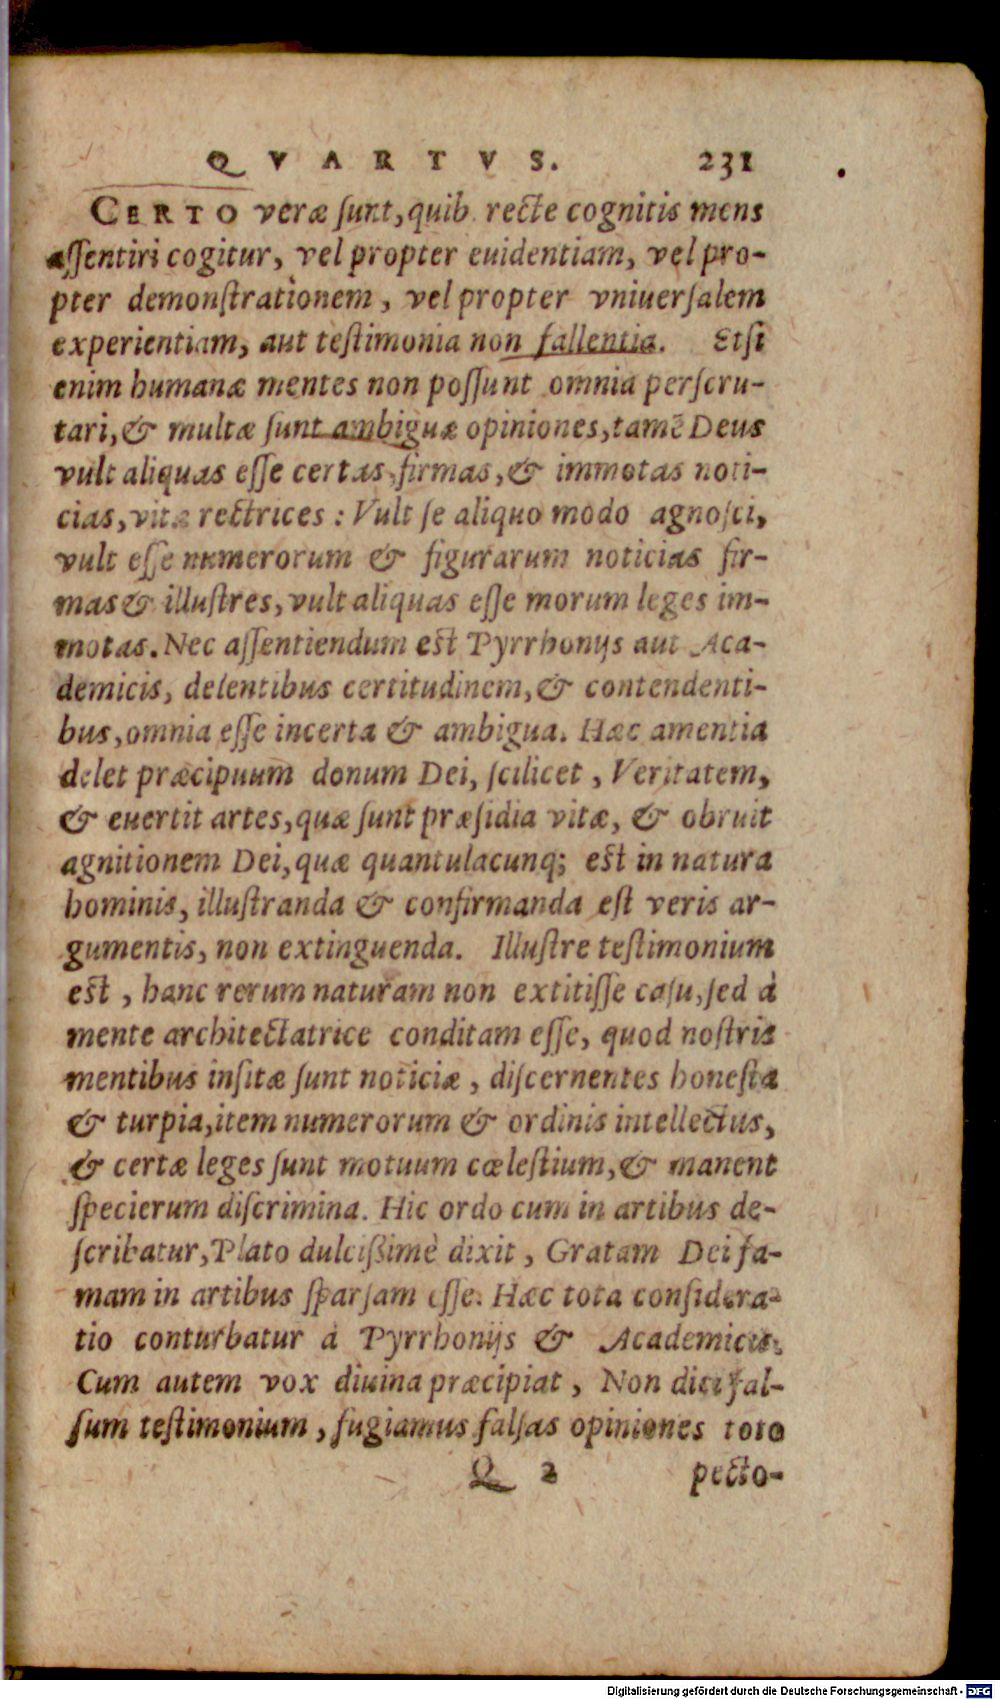 QVARTVS. 231
CERTO veræ ſunt, quib. recte cognitis mens
aſſentiri cogitur, vel propter euidentiam, vel pro-
pter demonſtrationem, vel propter vniuerſalem
experientiam, aut teſtimonia non fallentia. Etſi
enim humanæ mentes non poſſunt omnia perſcru-
tari, & multæ ſunt ambiguæ opiniones, tamē Deus
vult aliquas eſſe certas, firmas, & immotas noti-
cias, vitæ rectrices: Vult ſe aliquo modo agnoſci,
vult eſſe numerorum & figurarum noticias fir-
mas & illuſtres, vult aliquas eſſe morum leges im-
motas. Nec aſſentiendum eſt Pyrrhonijs aut Aca-
demicis, delentibus certitudinem, & contendenti-
bus, omnia eſſe incerta & ambigua. Hæc amentia
delet præcipuum donum Dei, ſcilicet, Veritatem,
& euertit artes, quæ ſunt præſidia vitæ, & obruit
agnitionem Dei, quæ quantulacunq; eſt in natura
hominis, illuſtranda & confirmanda eſt veris ar-
gumentis, non extinguenda. Illuſtre teſtimonium
eſt, hanc rerum naturam non extitiſſe caſu, ſed à
mente architectatrice conditam eſſe, quod noſtris
mentibus inſitæ ſunt noticiæ, diſcernentes honeſta
& turpia, item numerorum & ordinis intellectus,
& certæ leges ſunt motuum cœleſtium, & manent
ſpecierum diſcrimina. Hic ordo cum in artibus de-
ſcribatur, Plato dulcißimè dixit, Gratam Dei fa-
mam in artibus ſparſam eſſe. Hæc tota conſidera-
tio conturbatur à Pyrrhonijs & Academicis.
Cum autem vox diuina præcipiat, Non dices fal-
ſum teſtimonium, fugiamus falſas opiniones toto
Q 2 pecto-
Digitalisierung gefördert durch die Deutsche Forschungsgemeinschaft - DFG